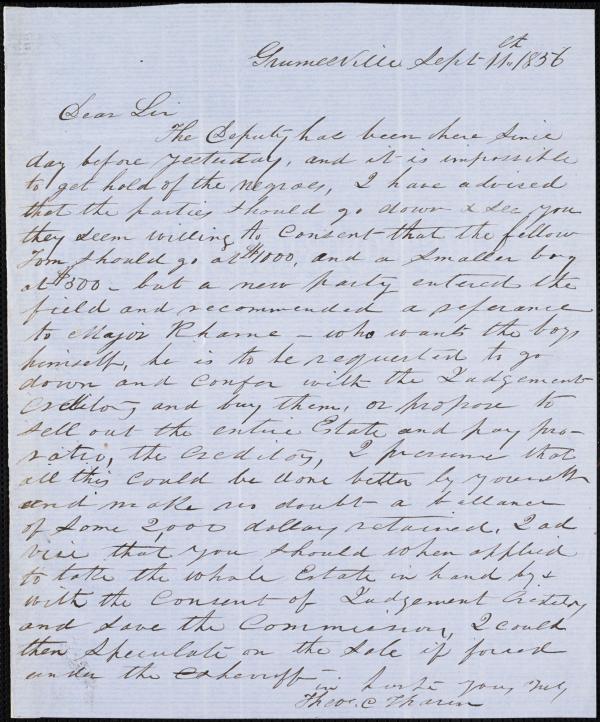 Grumesville Sept 11th 1856
Dear Sir
The Deputy has been here since
day before yesterday, and it is impossible
to get hold of the negroes, I have advised
that the parties should go down & see you
they seem willing to consent that the fellow
Tom should go at $1000, and a smaller boy
at $500 - but a new party entered the
field and recommended a referance
to Major Rhame - who wants the boys
himself, he is to be requested to go
down and confer with the Judgement
creditors and buy them, or propose to
sell out the entire Estate and pay pro-
ratio, the creditors, I presume that
all this could be done better by yourself
and make no doubt a ballance
of some 2,000 dollars retained, I ad
vise that you should when applied
to take the whole Estate in hand by &
with the consent of Judgement Creditors
and save the Commissions, I could
then speculate on the sale if forced
under the Sheriff
in haste yours truly
Theo. C Tharin